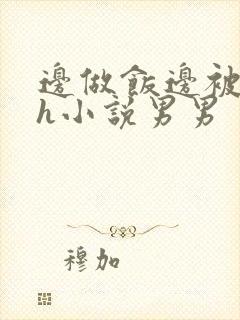 邊做飯邊被
h小說男男
穆加